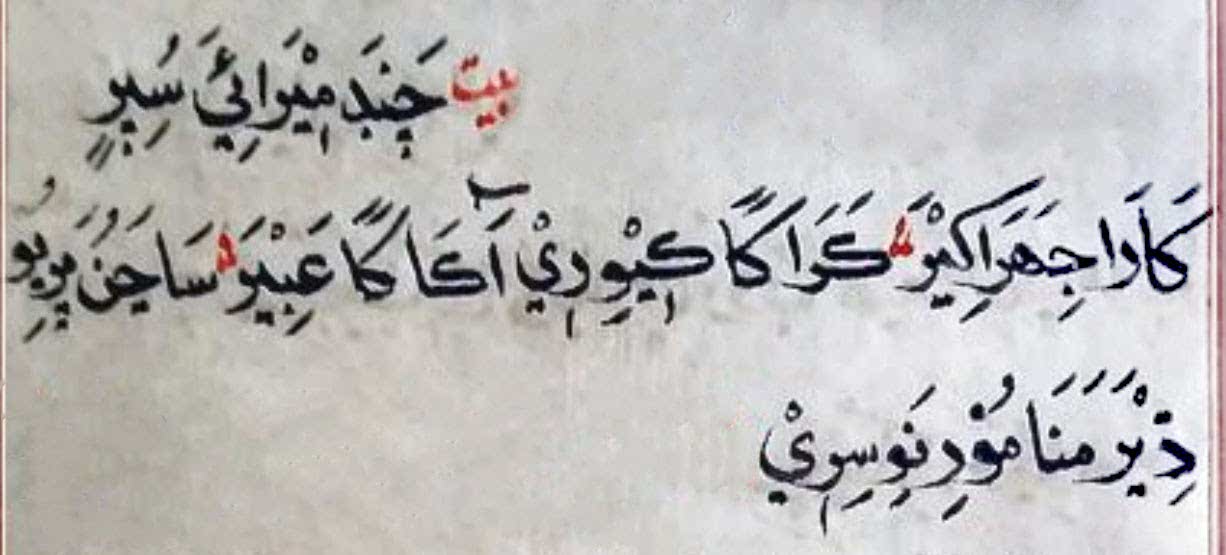 بيت چَنبَدِ مِيْرَائِيَ سُپِرٍ
كَارَا جِهَرَا كِيْرَ ، كَرَا كًا كِيْوِرِيْ آكَا كًا عَبِيْرَ ، سَاجَنُ پِرِيُو
دِيْرَ مَنَا مُوْرِ نَوِسِرِيْ